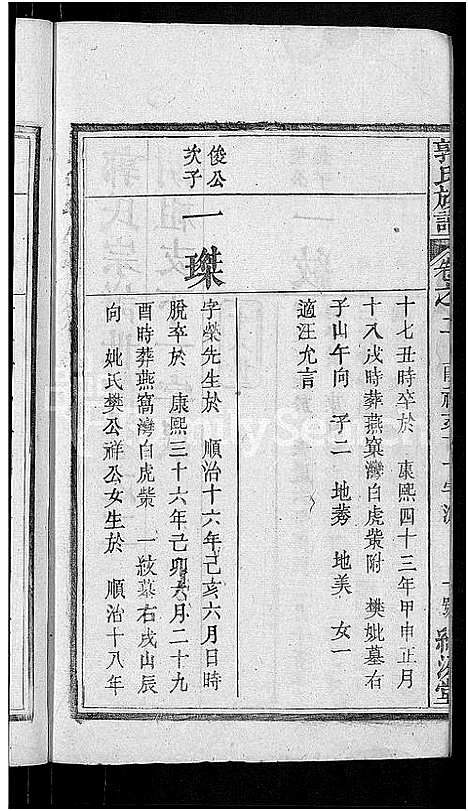 郭氏族譜
卷之二
十七丑時卒於 康熙四十三年甲申正月
十八戌時葬燕窠灣白虎柴附 樊妣墓右
子山午向 子二 地莠 地美 女一
適汪允言
俊公
次子
一瑮
字榮先生於 順治十六年己亥六月日時
脫卒於 康熙三十六年己卯六月二十九
酉時葬燕窩灣白虎柴 一紋墓右戌山辰
向 姚氏樊公祥公女生於 順治十八年